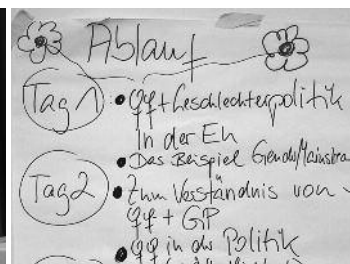 Ablauf
Tag 1 • Gg + Geschlechterpolitik
in der EU
• Das Beispiel
Tag 2 • Zum Verständnis von
Gg + GP
• Gg in der Politik